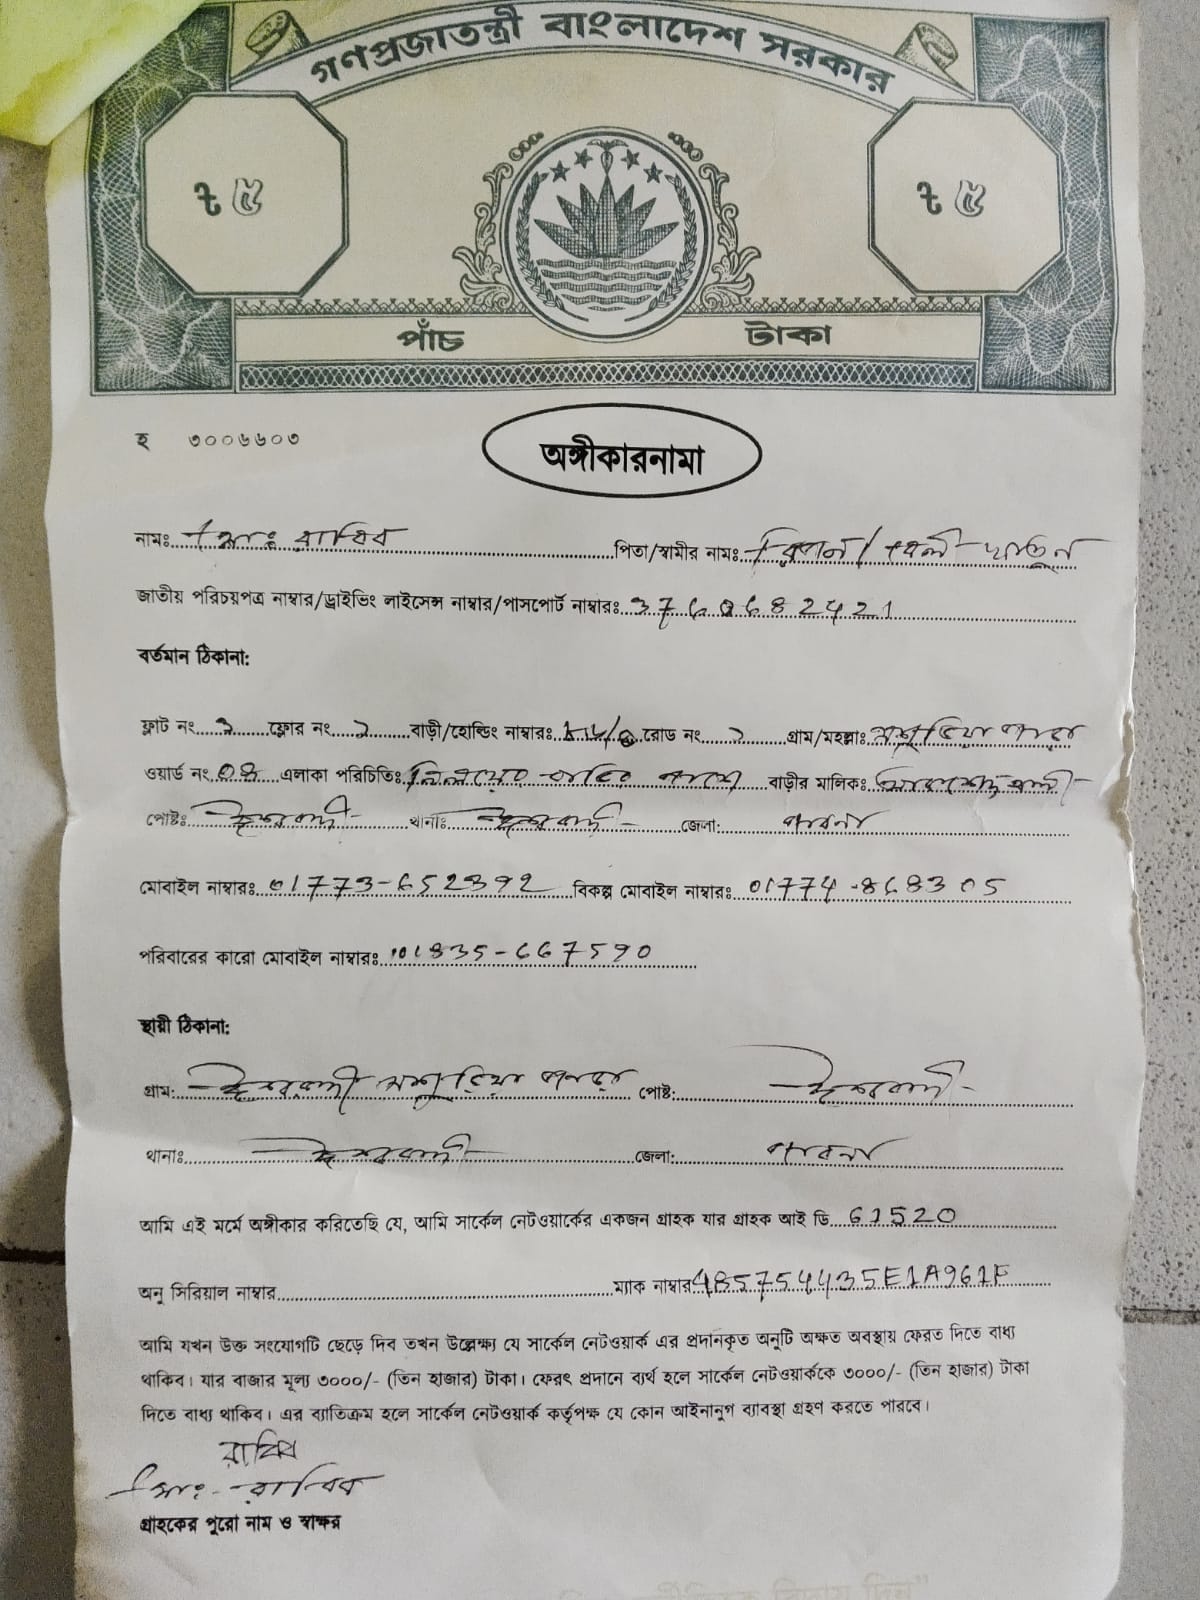 গণপ্রজাতন্ত্রী বাংলাদেশ সরকার
৳ ৫ ৳ ৫
পাঁচ টাকা
হ ৩০০৬৬০৩
অঙ্গীকারনামা
নামঃ মোঃ রাকিব পিতা/স্বামীর নামঃ খাতুন
জাতীয় পরিচয়পত্র নাম্বার/ড্রাইভিং লাইসেন্স নাম্বার/পাসপোর্ট নাম্বারঃ 3760682421
বর্তমান ঠিকানা:
ফ্লাট নং ফ্লোর নং বাড়ী/হোল্ডিং নাম্বারঃ রোড নং গ্রাম/মহল্লাঃ মশুড়িয়া পাড়া
ওয়ার্ড নং এলাকা পরিচিতিঃ বাড়ির পাশে বাড়ীর মালিকঃ
পোষ্টঃ ঈশ্বরদী থানাঃ ঈশ্বরদী জেলা: পাবনা
মোবাইল নাম্বারঃ 01773-652392 বিকল্প মোবাইল নাম্বারঃ 01774-868305
পরিবারের কারো মোবাইল নাম্বারঃ 01835-667590
স্থায়ী ঠিকানা:
গ্রাম: ঈশ্বরদী মশুড়িয়া পাড়া পোষ্ট: ঈশ্বরদী
থানাঃ ঈশ্বরদী জেলা: পাবনা
আমি এই মর্মে অঙ্গীকার করিতেছি যে, আমি সার্কেল নেটওয়ার্কের একজন গ্রাহক যার গ্রাহক আই ডি 61520
অনু সিরিয়াল নাম্বার ম্যাক নাম্বার 485754435E1A961F
আমি যখন উক্ত সংযোগটি ছেড়ে দিব তখন উল্লেক্ষ্য যে সার্কেল নেটওয়ার্ক এর প্রদানকৃত অনুটি অক্ষত অবস্থায় ফেরত দিতে বাধ্য
থাকিব। যার বাজার মূল্য ৩০০০/- (তিন হাজার) টাকা। ফেরৎ প্রদানে ব্যর্থ হলে সার্কেল নেটওয়ার্ককে ৩০০০/- (তিন হাজার) টাকা
দিতে বাধ্য থাকিব। এর ব্যাতিক্রম হলে সার্কেল নেটওয়ার্ক কর্তৃপক্ষ যে কোন আইনানুগ ব্যাবস্থা গ্রহণ করতে পারবে।
রাকিব
মোঃ রাকিব
গ্রাহকের পুরো নাম ও স্বাক্ষর